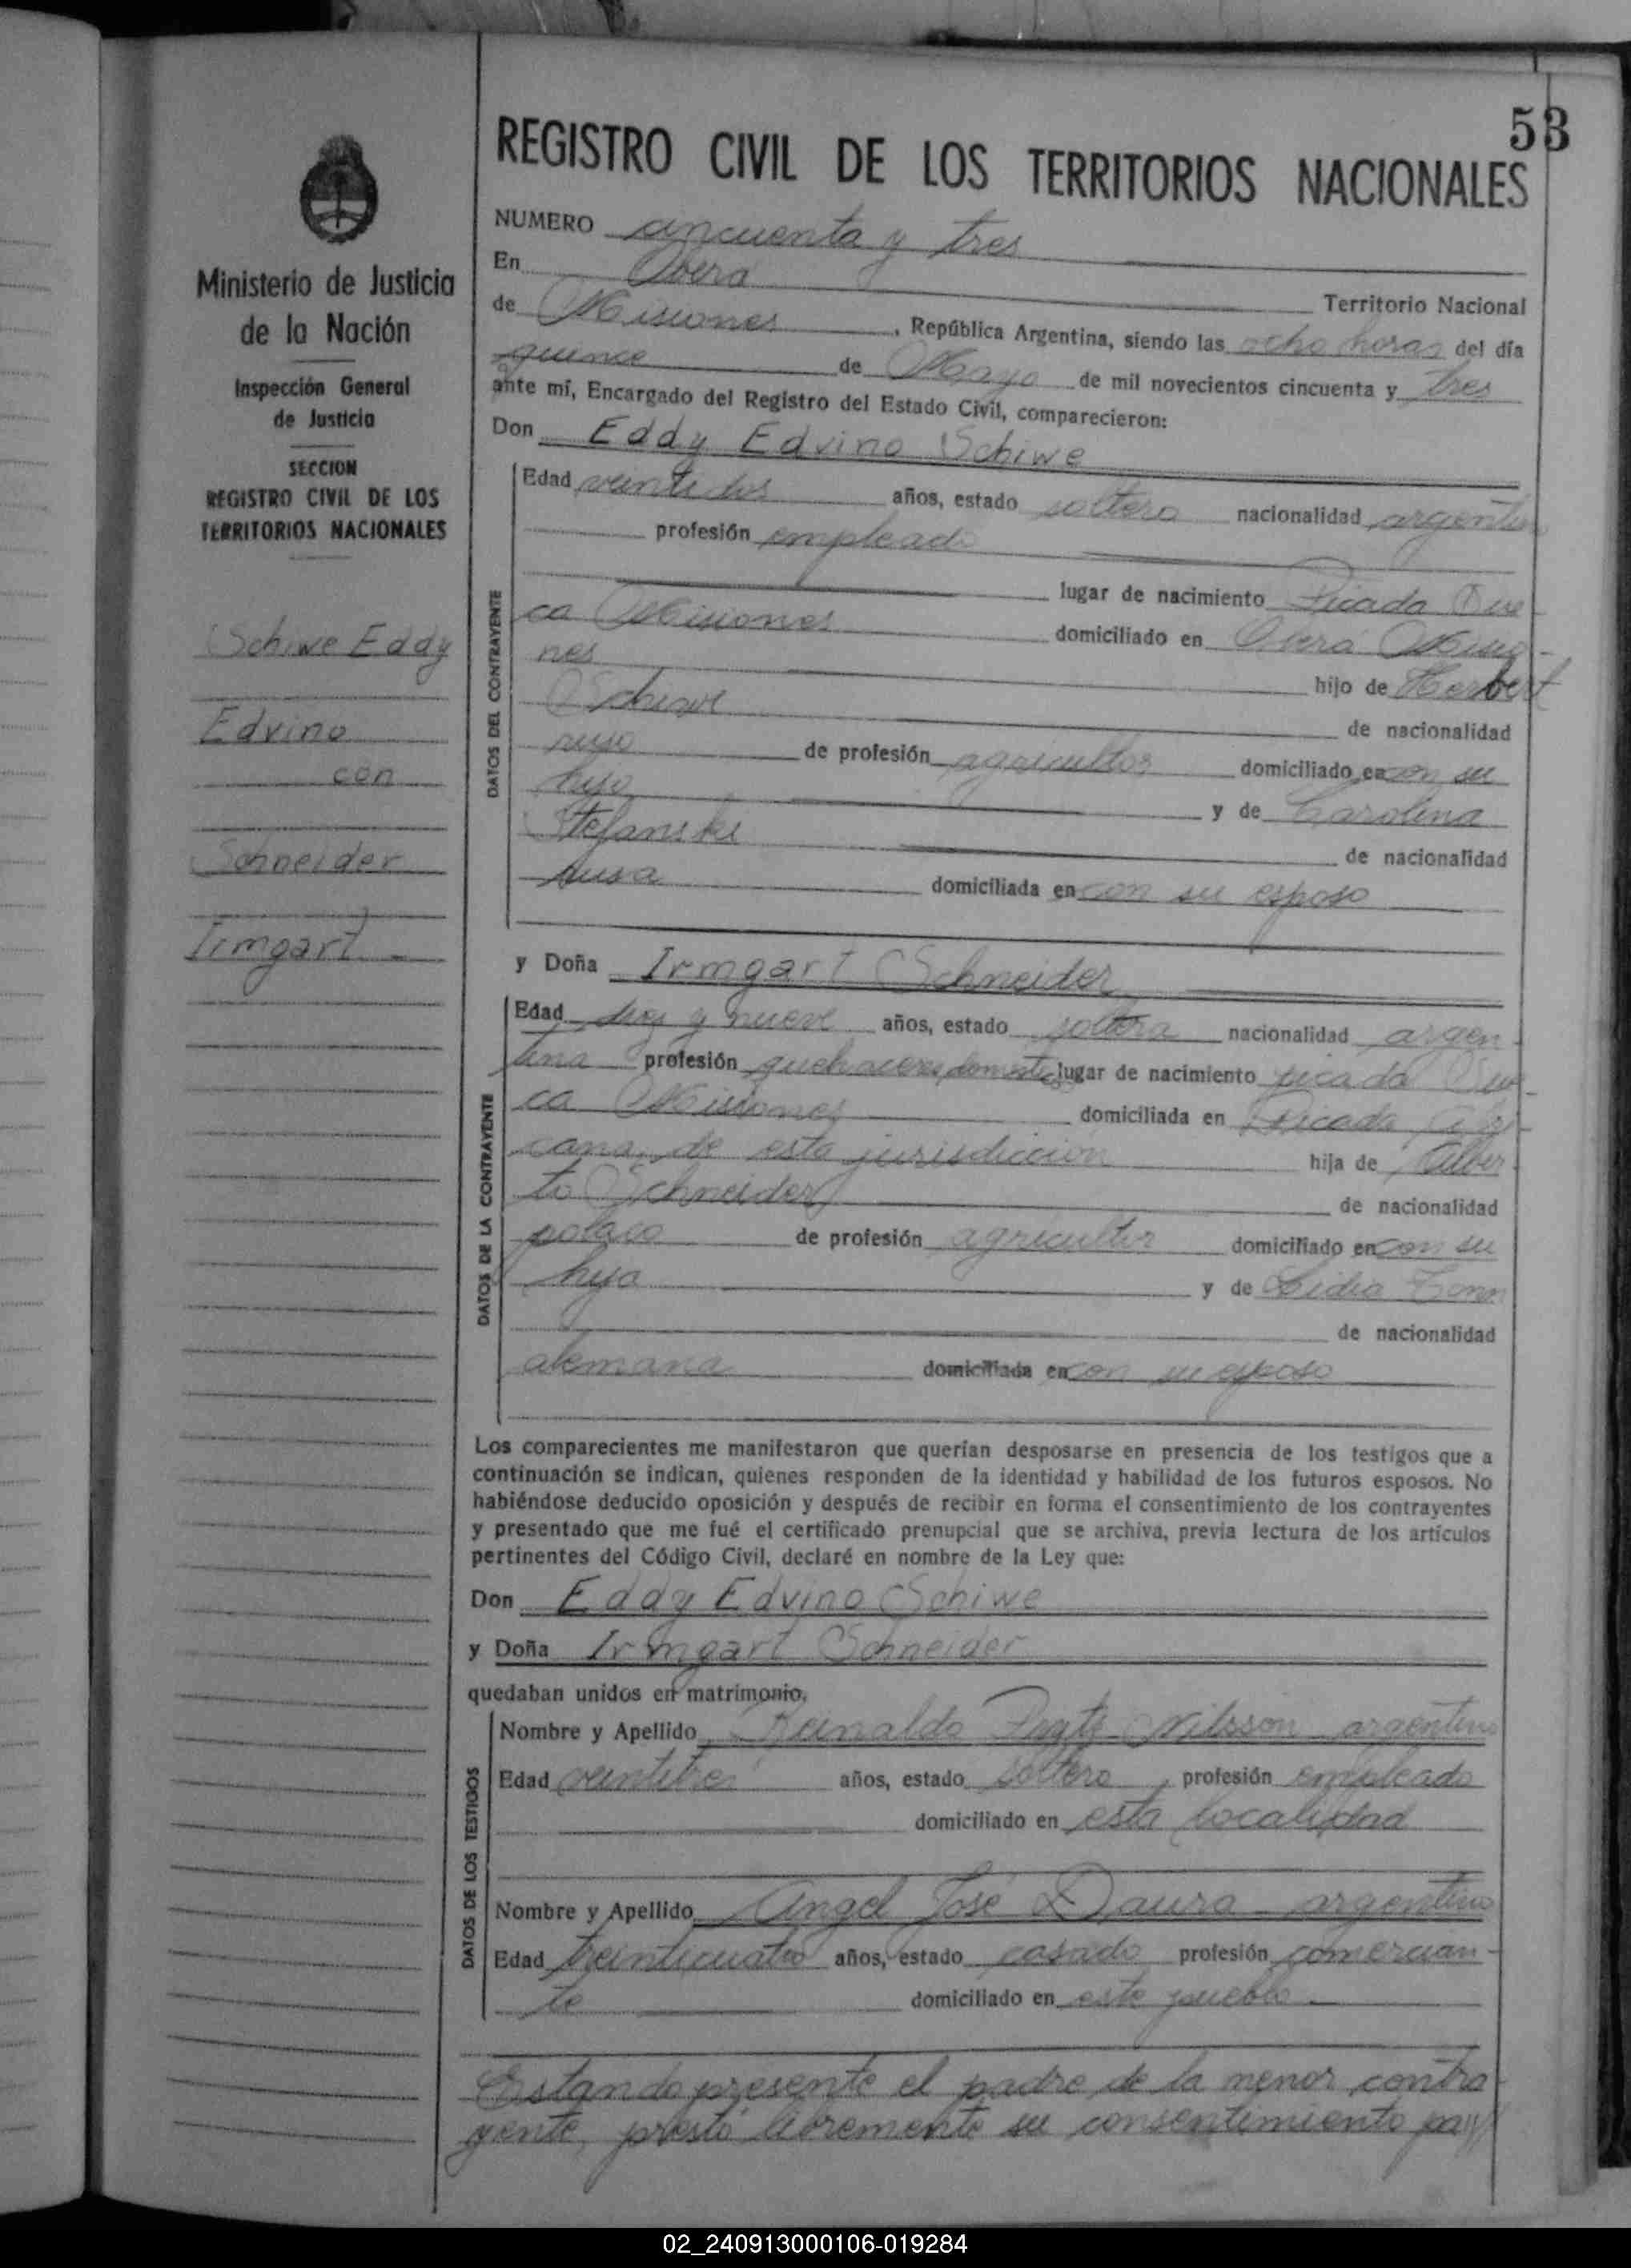 53
REGISTRO CIVIL DE LOS TERRITORIOS NACIONALES
Ministerio de Justicia
de la Nación
Inspección General
de Justicia
SECCION
REGISTRO CIVIL DE LOS
TERRITORIOS NACIONALES
Schiwe Eddy
Edvino
con
Schneider
Irmgart
NUMERO cincuenta y tres
En Oberá Territorio Nacional
de Misiones, República Argentina, siendo las ocho horas del día
quince de Mayo de mil novecientos cincuenta y tres
ante mí, Encargado del Registro del Estado Civil, comparecieron:
Don Eddy Edvino Schiwe
DATOS DEL CONTRAYENTE
Edad veintidos años, estado soltero nacionalidad argentino
profesión empleado
lugar de nacimiento Picada Sue-
ca Misiones domiciliado en Oberá Misio-
nes hijo de Herbert
Schiwe de nacionalidad
ruso de profesión agricultor domiciliado en con su
hijo y de Carolina
Stefanski de nacionalidad
rusa domiciliada en con su esposo
y Doña Irmgart Schneider
DATOS DE LA CONTRAYENTE
Edad diez y nueve años, estado soltera nacionalidad argen-
tina profesión quehaceres domesticos lugar de nacimiento picada Sue-
ca Misiones domiciliada en Picada Afri-
cana, de esta jurisdicción hija de Alber-
to Schneider de nacionalidad
polaco de profesión agricultor domiciliado en con su
hija y de Lidia
de nacionalidad
alemana domiciliada en con su esposo
Los comparecientes me manifestaron que querían desposarse en presencia de los testigos que a
continuación se indican, quienes responden de la identidad y habilidad de los futuros esposos. No
habiéndose deducido oposición y después de recibir en forma el consentimiento de los contrayentes
y presentado que me fué el certificado prenupcial que se archiva, previa lectura de los artículos
pertinentes del Código Civil, declaré en nombre de la Ley que:
Don Eddy Edvino Schiwe
y Doña Irmgart Schneider
quedaban unidos en matrimonio.
DATOS DE LOS TESTIGOS
Nombre y Apellido Reinaldo Nilsson argentino
Edad veintitres años, estado soltero, profesión empleado
domiciliado en esta localidad
Nombre y Apellido Angel José Daura - argentino
Edad treinticuatro años, estado casado profesión comercian-
te domiciliado en este pueblo
Estando presente el padre de la menor contra-
yente, prestó libremente su consentimiento pa
02_240913000106-019284